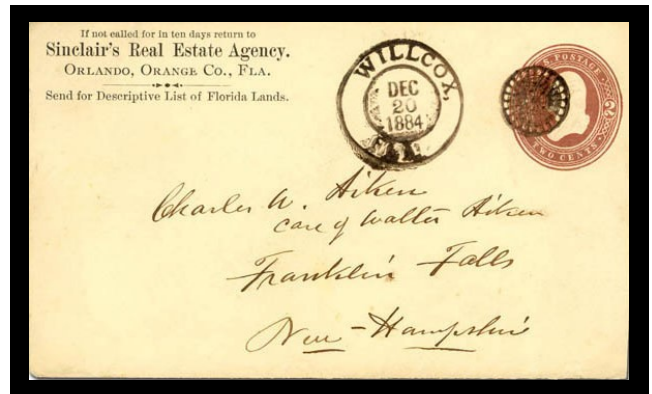 If not called for in ten days return to
Sinclair's Real Estate Agency.
ORLANDO, ORANGE CO., FLA.
Send for Descriptive List of Florida Lands.
WILLCOX,
DEC
20
1884
FLA.
U.S. POSTAGE
2
TWO CENTS
Charles W. Aiken
care of Walter Aiken
Franklin Falls
New-Hampshire